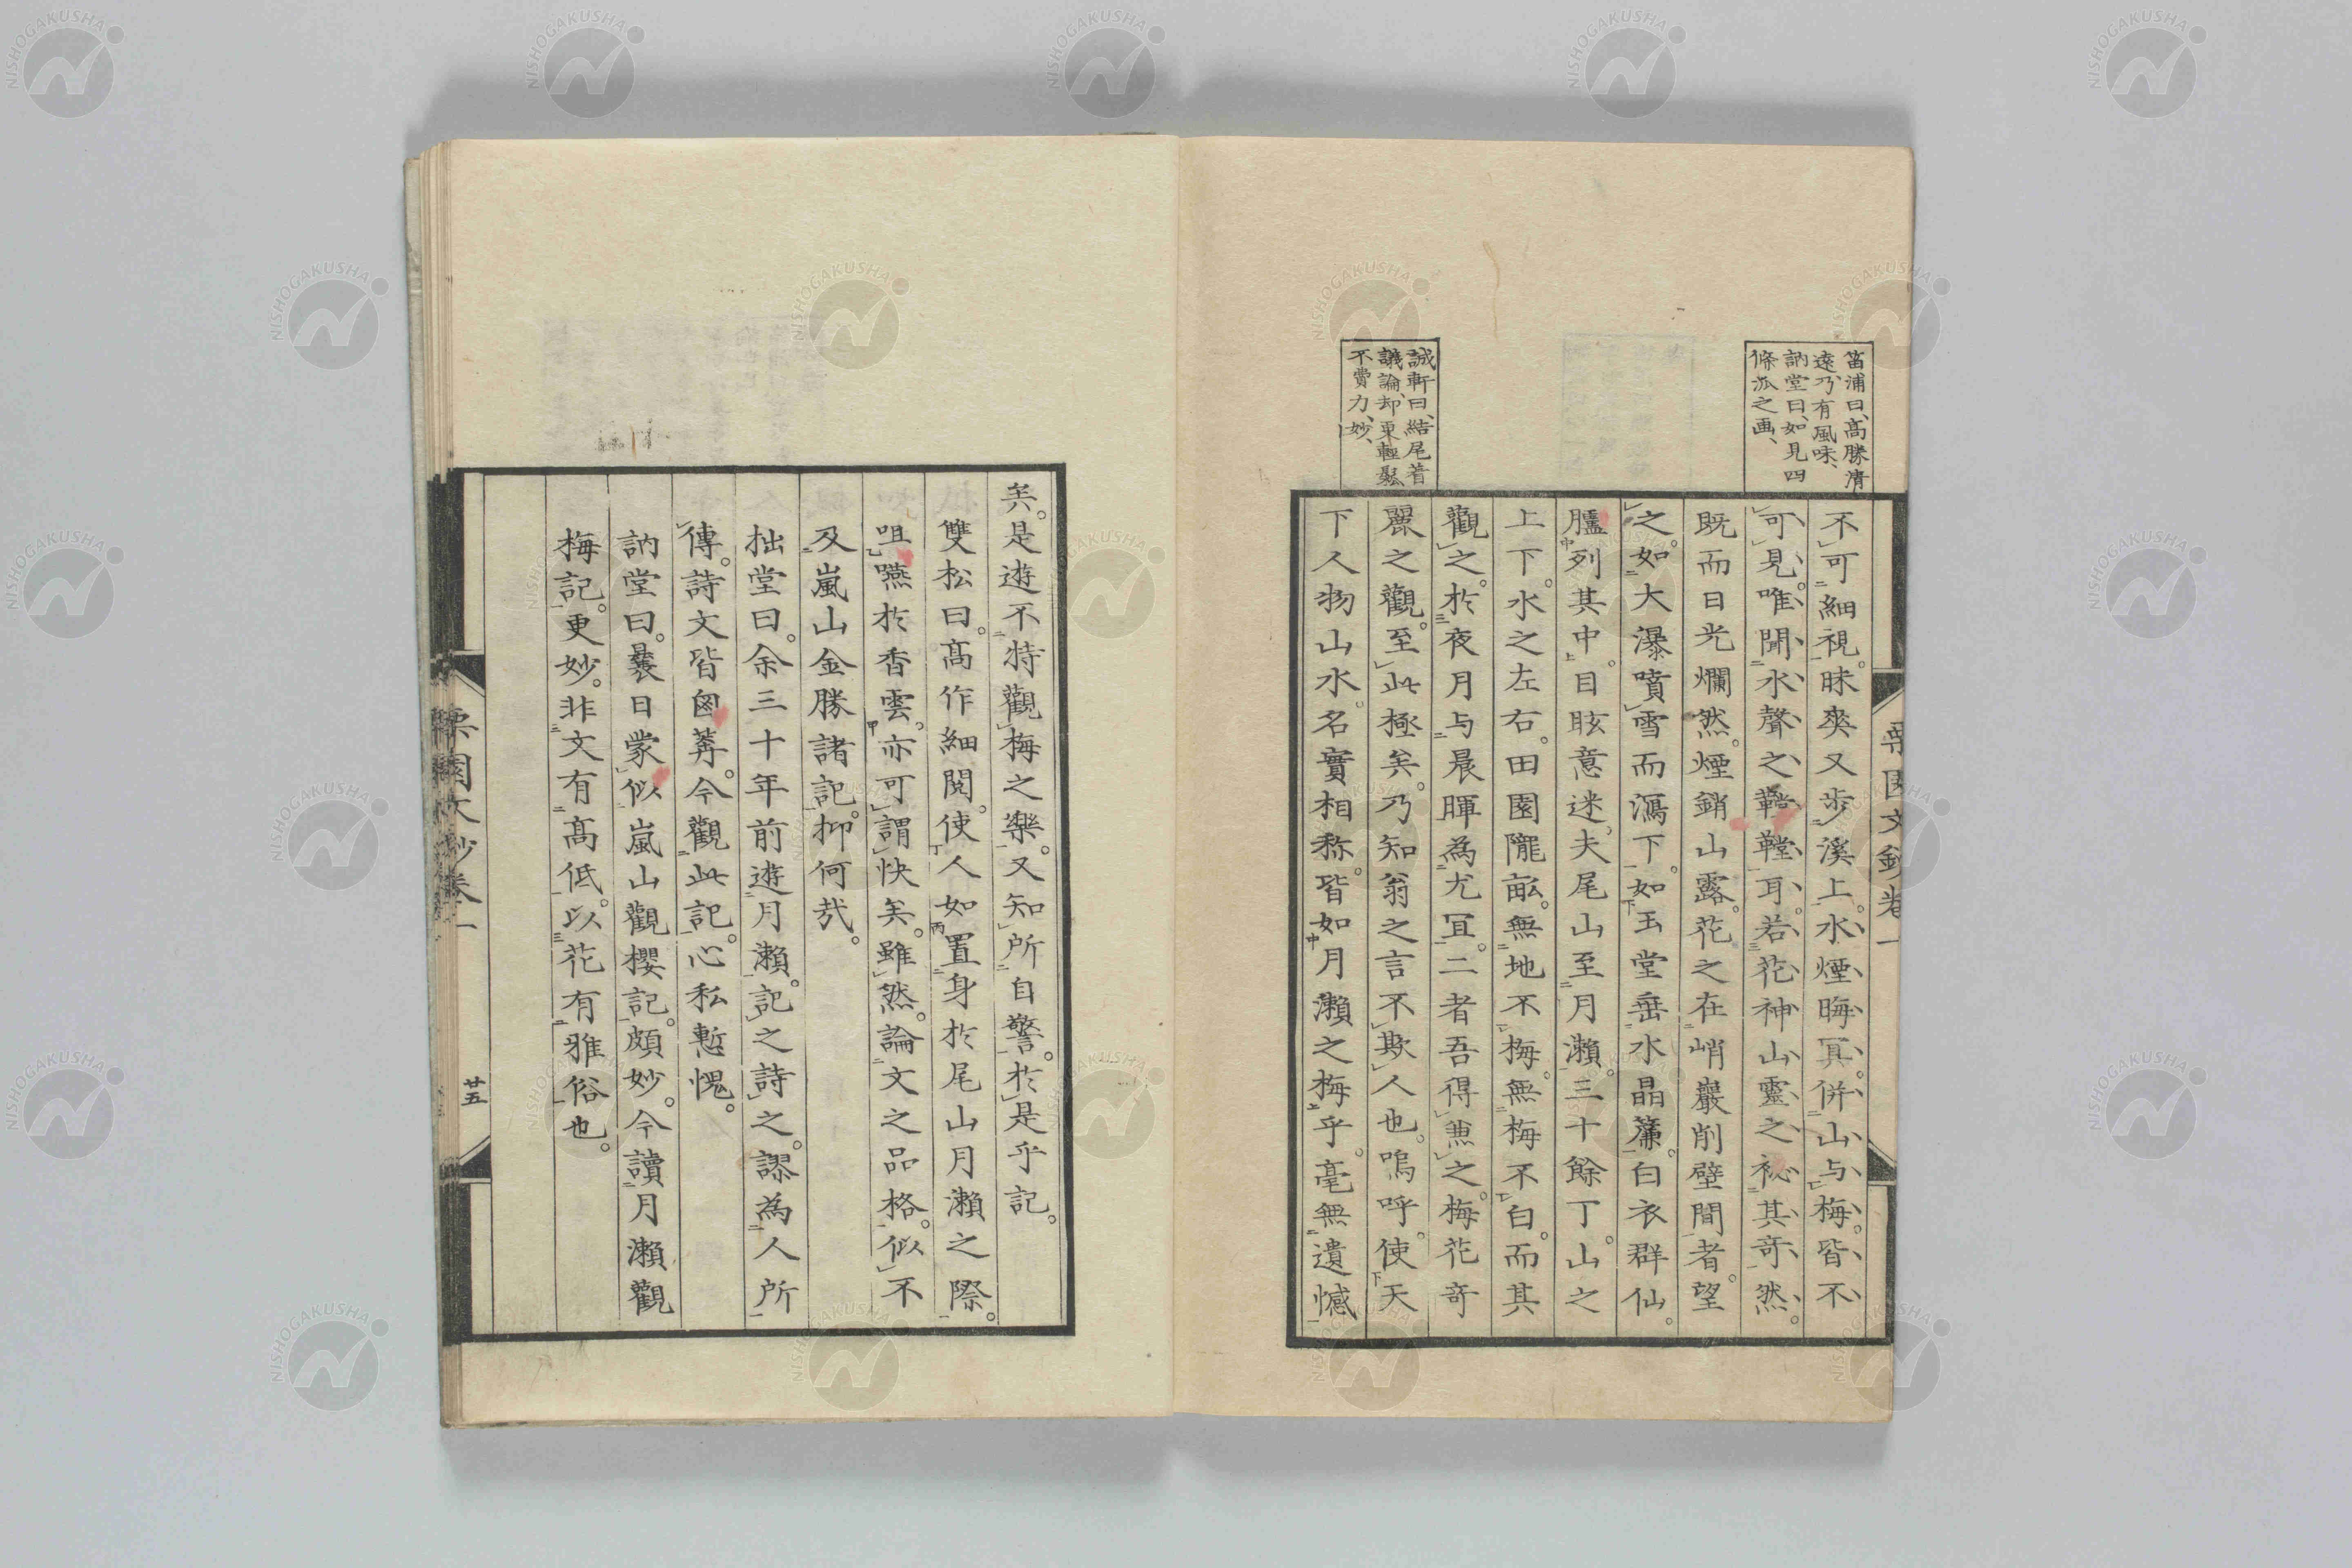 笛浦曰、高勝清
遠、乃有風味、
訥堂曰、如見四
條派之画、
誠軒曰、結尾着
議論、却更輕鬆
不費力、妙、
栗園文鈔卷一
不可細視。昧爽又步溪上。水煙晦冥。併山与梅。皆不
可見。唯聞水聲之鞺鞳耳。若花神山靈之祕其奇然。
既而日光爛然。煙銷山露。花之在峭巖削壁間者。望
之。如大瀑噴雪而瀉下。如玉堂垂水晶簾。白衣群仙。
臚列其中。目眩意迷。夫尾山至月瀨。三十餘丁。山之
上下。水之左右。田園隴畝。無地不梅。無梅不白。而其
觀之。於夜月与晨暉為尤宜。二者吾得兼之。梅花奇
麗之觀。至此極矣。乃知翁之言不欺人也。嗚呼。使天
下人物山水。名實相称。皆如月瀨之梅乎。毫無遺憾
矣。是遊不特觀梅之樂。又知所自警。於是乎記。
雙松曰。高作細閱。使人如置身於尾山月瀨之際。
咀嚥於香雲。亦可謂快矣。雖然。論文之品格。似不
及嵐山金勝諸記。抑何哉。
拙堂曰。余三十年前遊月瀨。記之詩之。謬為人所
傳。詩文皆鹵莽。今觀此記。心私慙愧。
訥堂曰。曩日蒙似嵐山觀櫻記。頗妙。今讀月瀨觀
梅記。更妙。非文有高低。以花有雅俗也。
栗園文鈔卷一
廿五
NISHOGAKUSHA